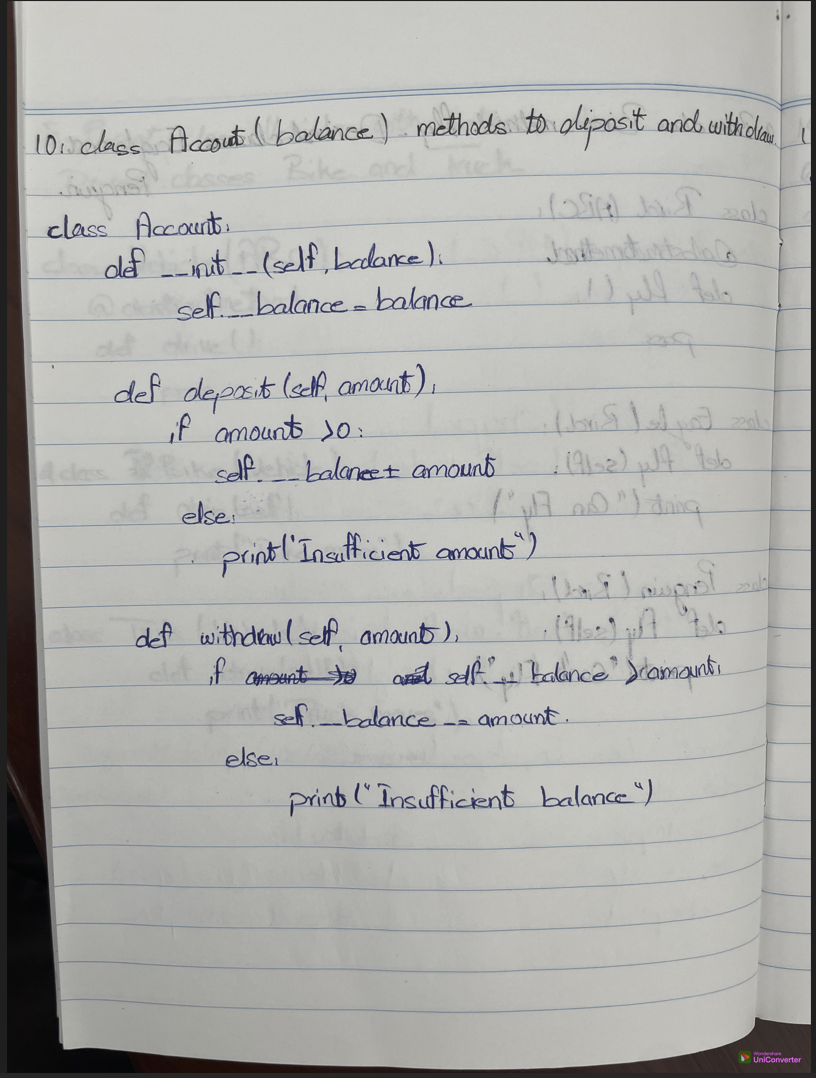 10. class Account (balance) methods to diposit and withdraw
class Account:
def __init__(self, balance):
self.__balance = balance
def deposit (self, amount):
if amount >0:
self.__balance+= amount
else:
print("Insufficient amount")
def withdraw(self, amount):
if self.__balance >amount:
self.__balance -= amount.
else:
print("Insufficient balance")
Wondershare
UniConverter